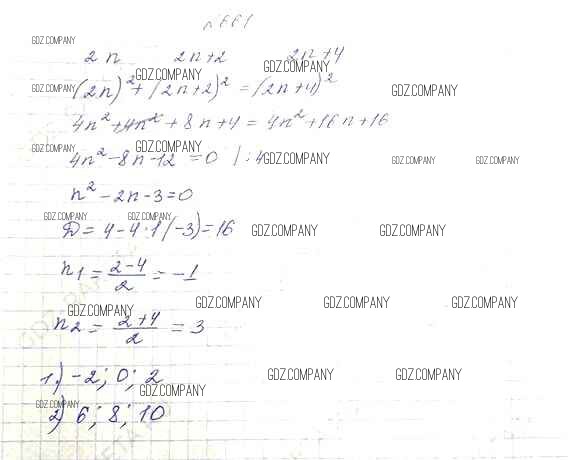 №661
GDZ.COMPANY
2n 2n+2 2n+4
GDZ.COMPANY GDZ.COMPANY
GDZ.COMPANY (2n)² + (2n+2)² = (2n+4)² GDZ.COMPANY
4n² + 4n² + 8n + 4 = 4n² + 16n + 16
GDZ.COMPANY GDZ.COMPANY GDZ.COMPANY GDZ.COMPANY GDZ.COMPANY
4n² - 8n - 12 = 0 | : 4
n² - 2n - 3 = 0
GDZ.COMPANY GDZ.COMPANY
D = 4 - 4 · 1 (-3) = 16 GDZ.COMPANY GDZ.COMPANY
n₁ = (2-4)/2 = -1
GDZ.COMPANY GDZ.COMPANY GDZ.COMPANY GDZ.COMPANY
n₂ = (2+4)/2 = 3
1) -2; 0; 2 GDZ.COMPANY GDZ.COMPANY
GDZ.COMPANY GDZ.COMPANY
2) 6; 8; 10